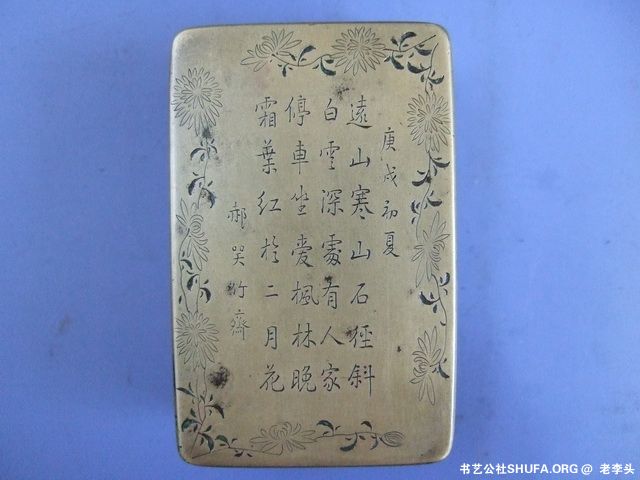 庚戌初夏
遠山寒山石徑斜
白雲深處有人家
停車坐愛楓林晚
霜葉紅於二月花
郝哭竹齋
书艺公社SHUFA.ORG @ 老李头